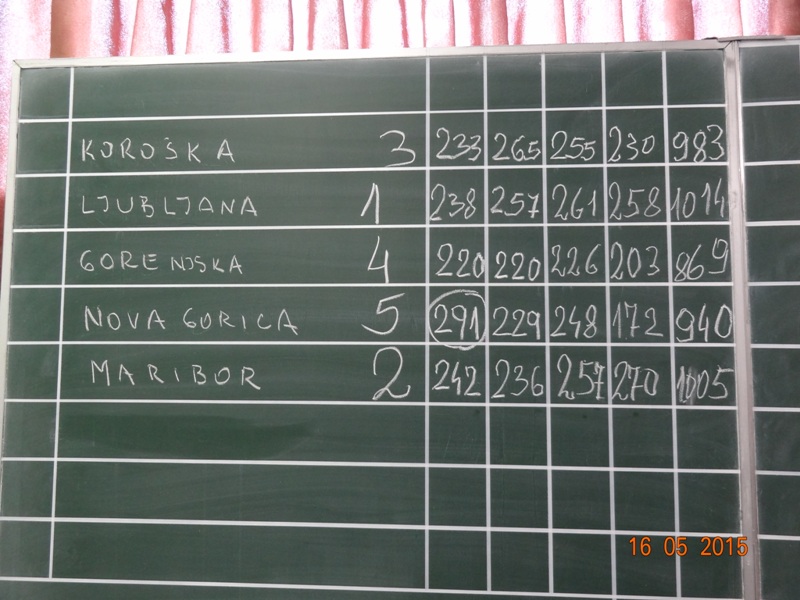 KOROŠKA 3 233 265 255 230 983
LJUBLJANA 1 238 257 261 258 1014
GORENJSKA 4 220 220 226 203 869
NOVA GORICA 5 291 229 248 172 940
MARIBOR 2 242 236 257 270 1005
16 05 2015